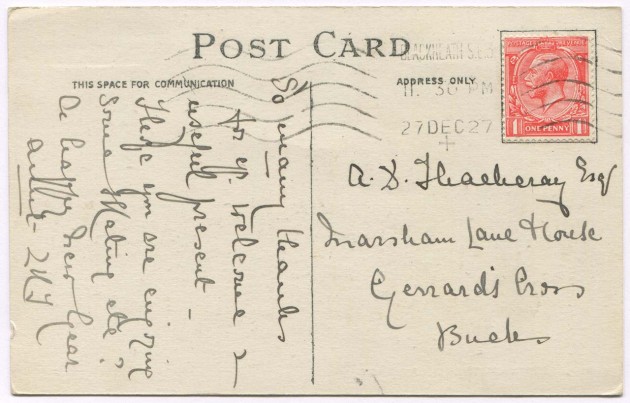 POST CARD
THIS SPACE FOR COMMUNICATION
ADDRESS ONLY
BLACKHEATH S.E.3
11. 30 PM
27 DEC 27
POSTAGE REVENUE
1 ONE PENNY 1
So many thanks
for yr. welcome &
useful present -
Hope you are enjoying
some skating etc:
A happy New Year
A. D. Thackeray Esq
Marsham Lane House
Gerrard's Cross
Bucks